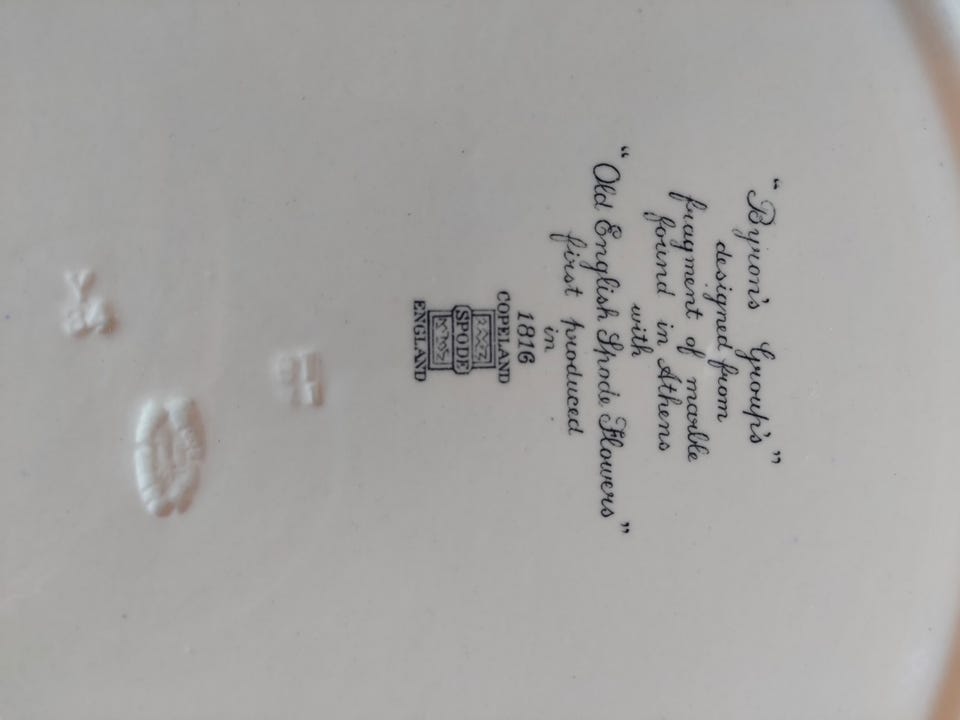 "Byron's Groups"
designed from
fragment of marble
found in Athens
with
"Old English Spode Flowers"
first produced
in
1816
COPELAND
SPODE
ENGLAND